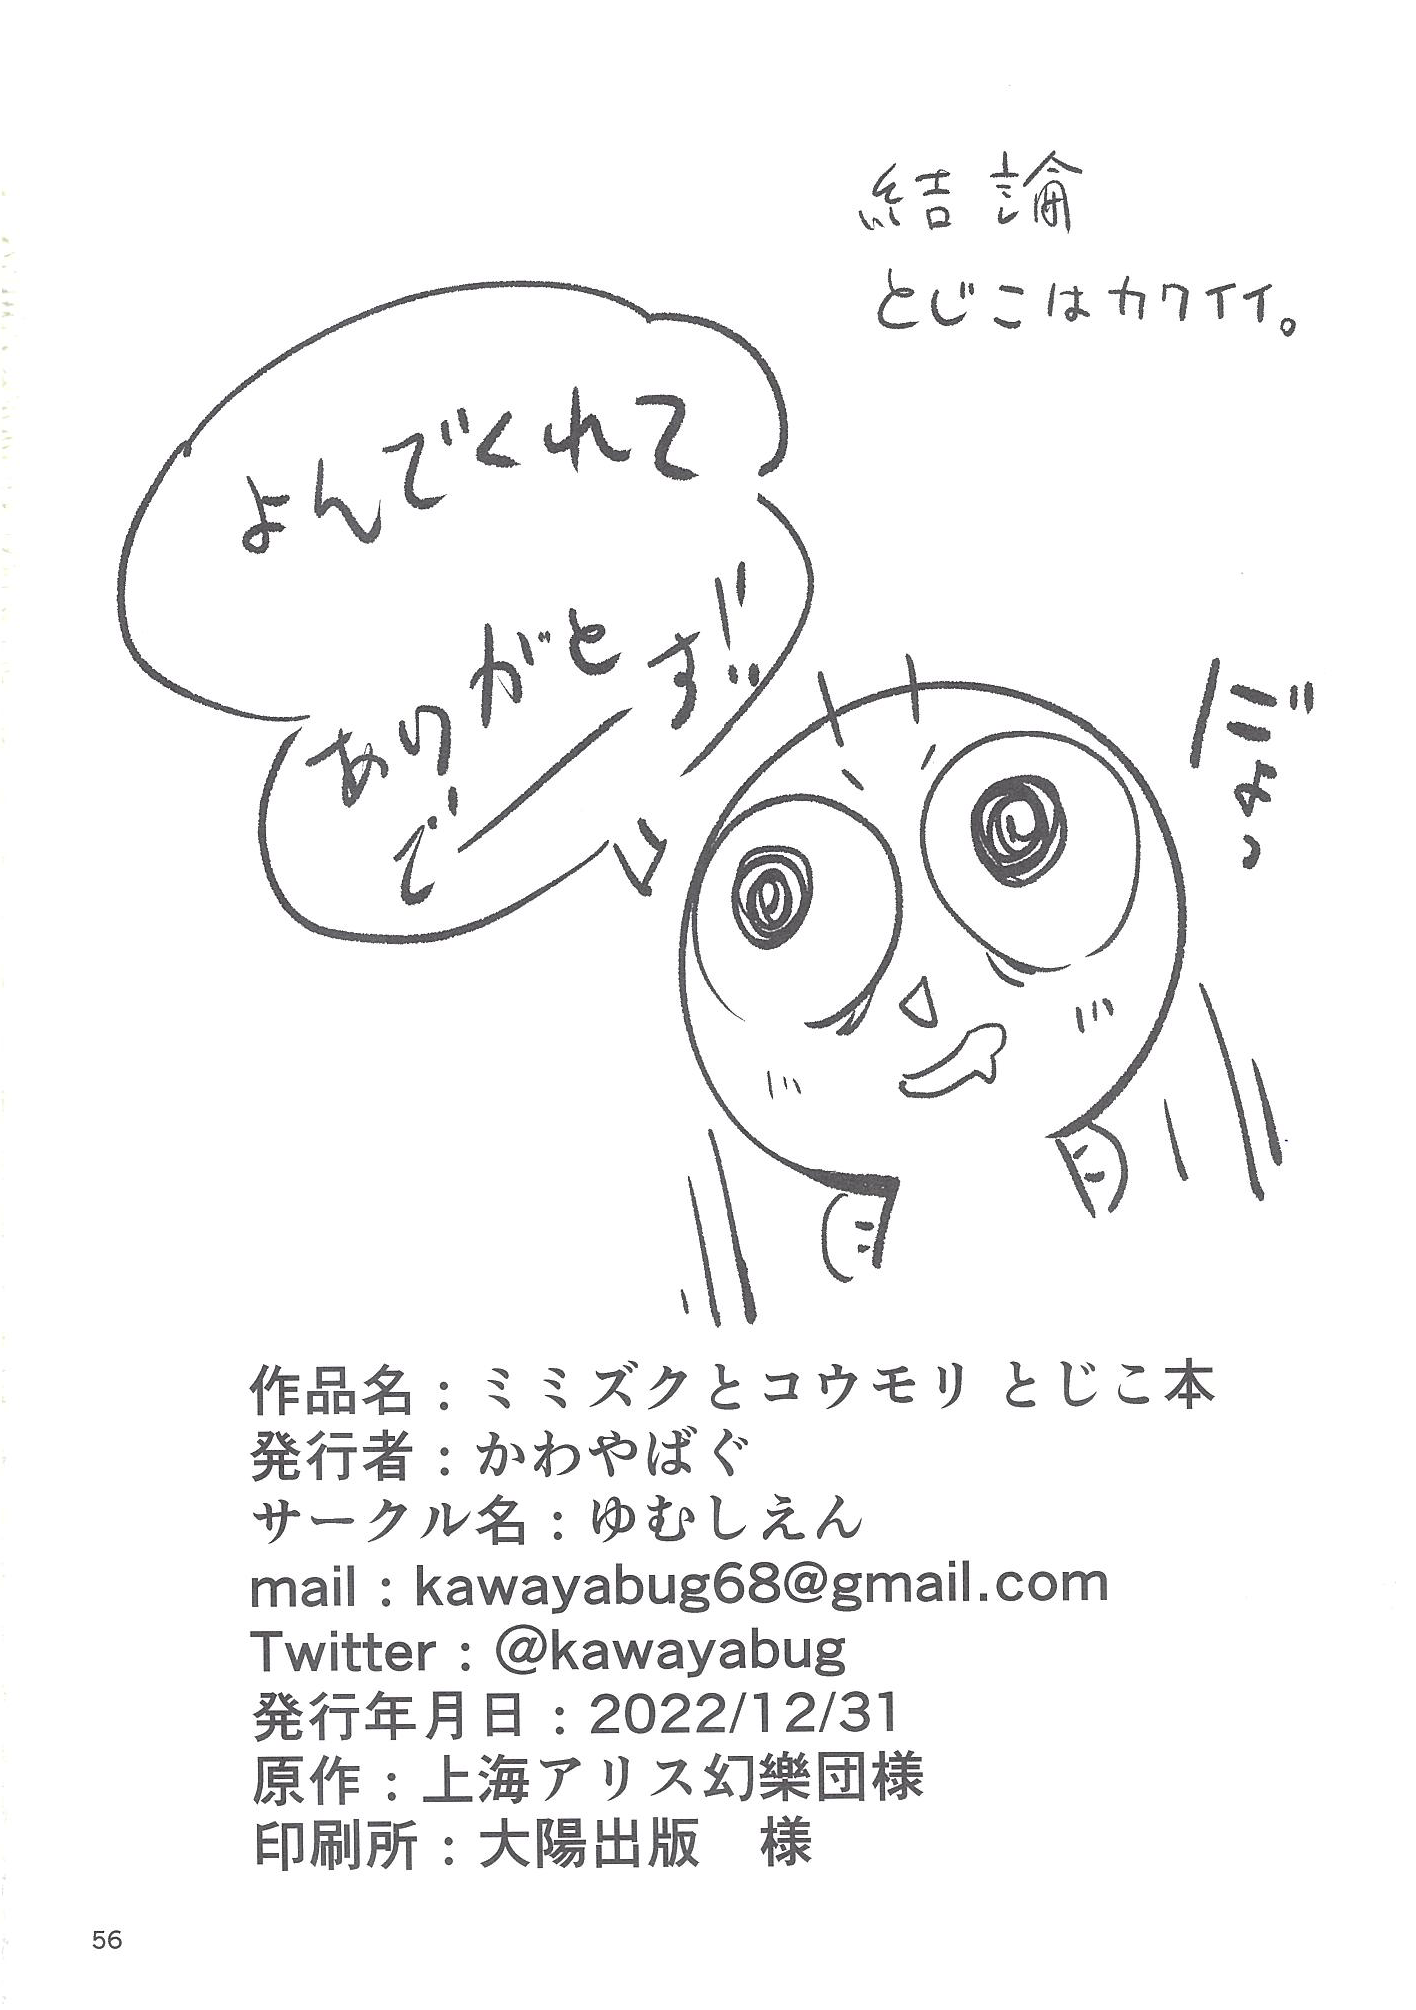 結論
とじこはカワイイ。
よんでくれて
ありがと
で――す!!
作品名：ミミズクとコウモリ とじこ本
発行者：かわやばぐ
サークル名：ゆむしえん
mail：kawayabug68@gmail.com
Twitter：@kawayabug
発行年月日：2022/12/31
原作：上海アリス幻樂団様
印刷所：大陽出版　様
56